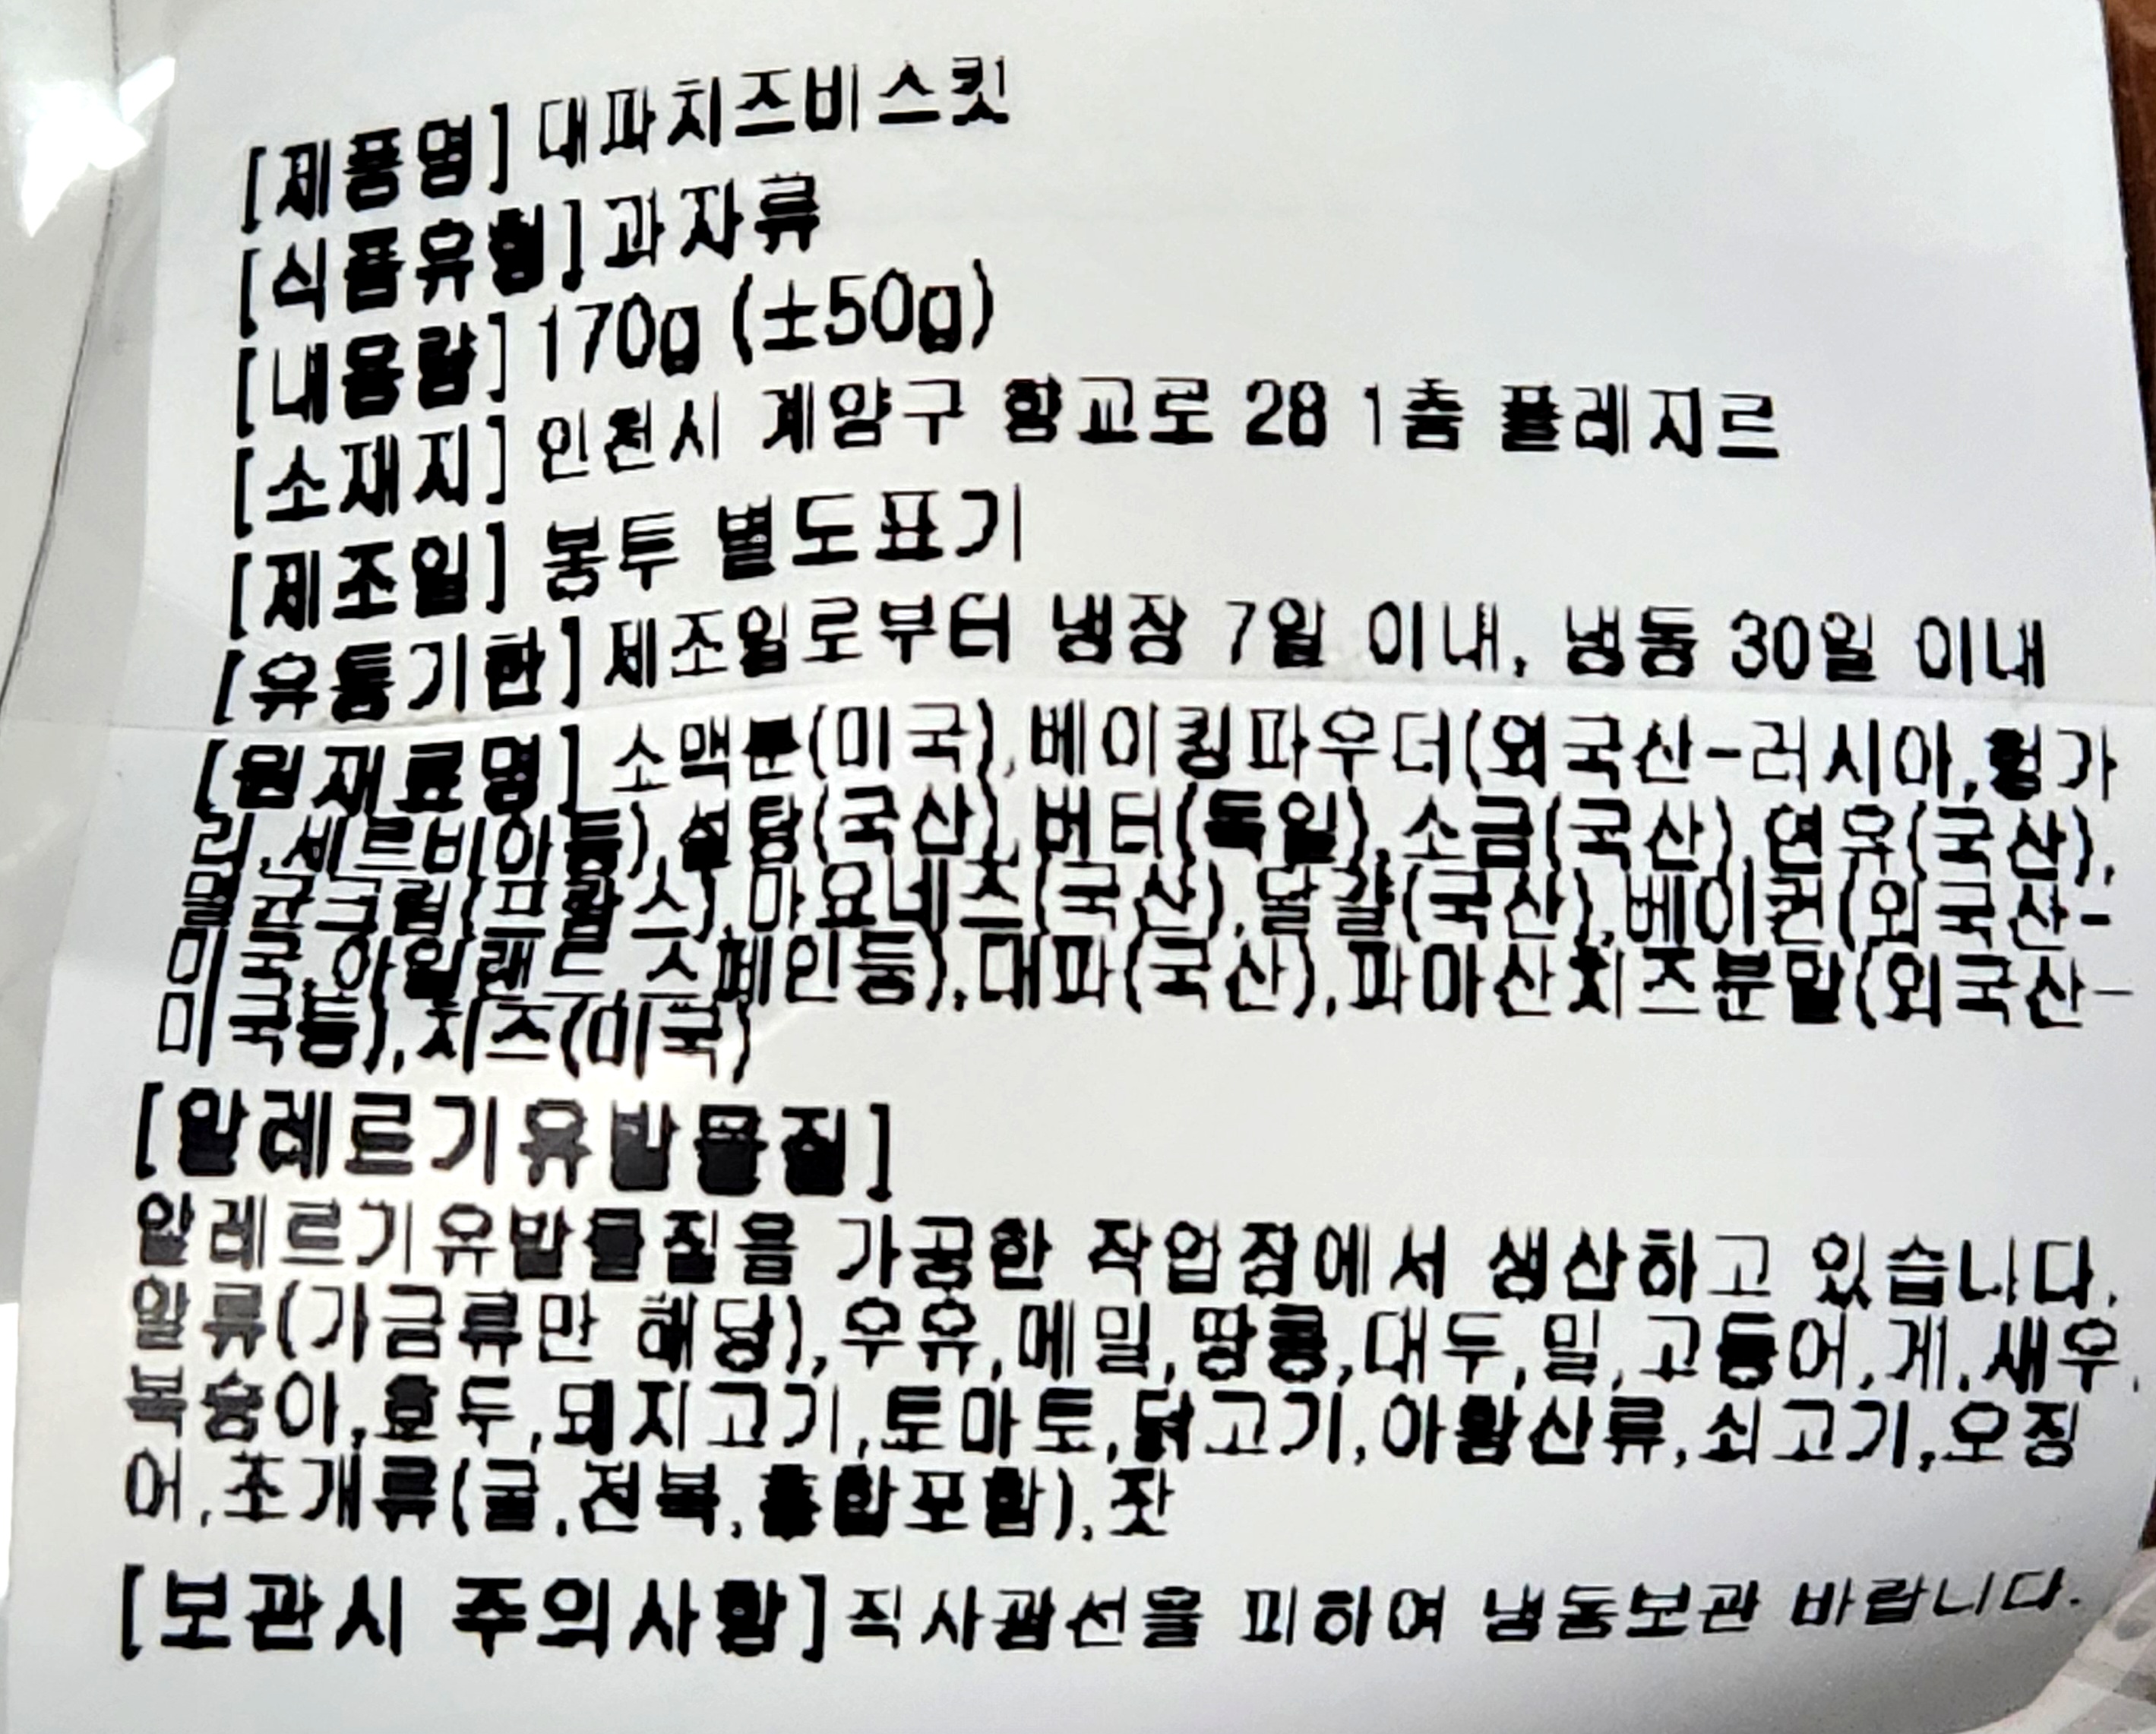 [제품명] 대파치즈비스킷
[식품유형] 과자류
[내용량] 170g (±50g)
[소재지] 인천시 계양구 향교로 28 1층 플레지르
[제조일] 봉투 별도표기
[유통기한] 제조일로부터 냉장 7일 이내, 냉동 30일 이내
[원재료명] 소맥분(미국),베이킹파우더(외국산-러시아,헝가
리,세르비아등),설탕(국산),버터(독일),소금(국산),연유(국산),
멸균크림(프랑스),마요네즈(국산),달걀(국산),베이컨(외국산-
미국,아일랜드,스페인등),대파(국산),파마산치즈분말(외국산-
미국등),치즈(미국)
[알레르기유발물질]
알레르기유발물질을 가공한 작업장에서 생산하고 있습니다.
알류(가금류만 해당),우유,메밀,땅콩,대두,밀,고등어,게,새우,
복숭아,호두,돼지고기,토마토,닭고기,아황산류,쇠고기,오징
어,조개류(굴,전복,홍합포함),잣
[보관시 주의사항] 직사광선을 피하여 냉동보관 바랍니다.